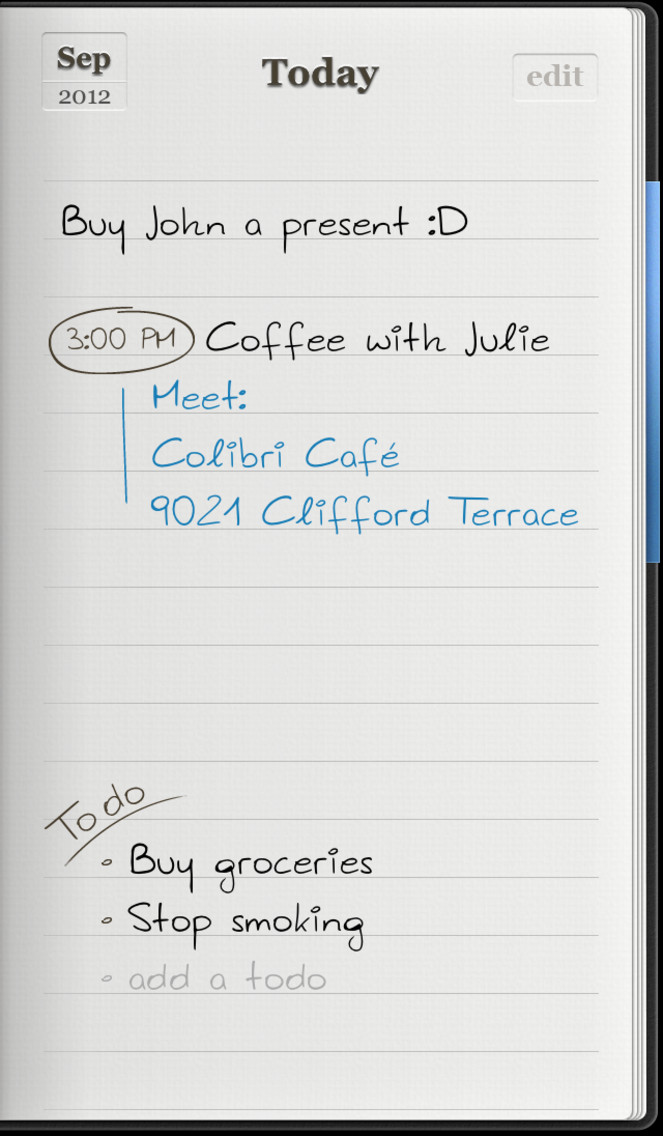 Sep
2012
Today
edit
Buy John a present :D
3:00 PM Coffee with Julie
Meet:
Colibri Café
9021 Clifford Terrace
Todo
Buy groceries
Stop smoking
add a todo